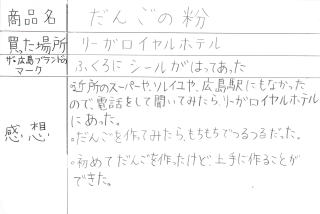 商品名 だんごの粉
買った場所 リーガロイヤルホテル
ザ・広島ブランドの
マーク ふくろに シールがはってあった
感想
○近所のスーパーや、ソレイユや、広島駅にもなかった
ので、電話をして聞いてみたら、リーガロイヤルホテル
にあった。
○だんごを作ってみたら、もちもちでつるつるだった。
○初めてだんごを作ったけど、上手に作ることが
できた。